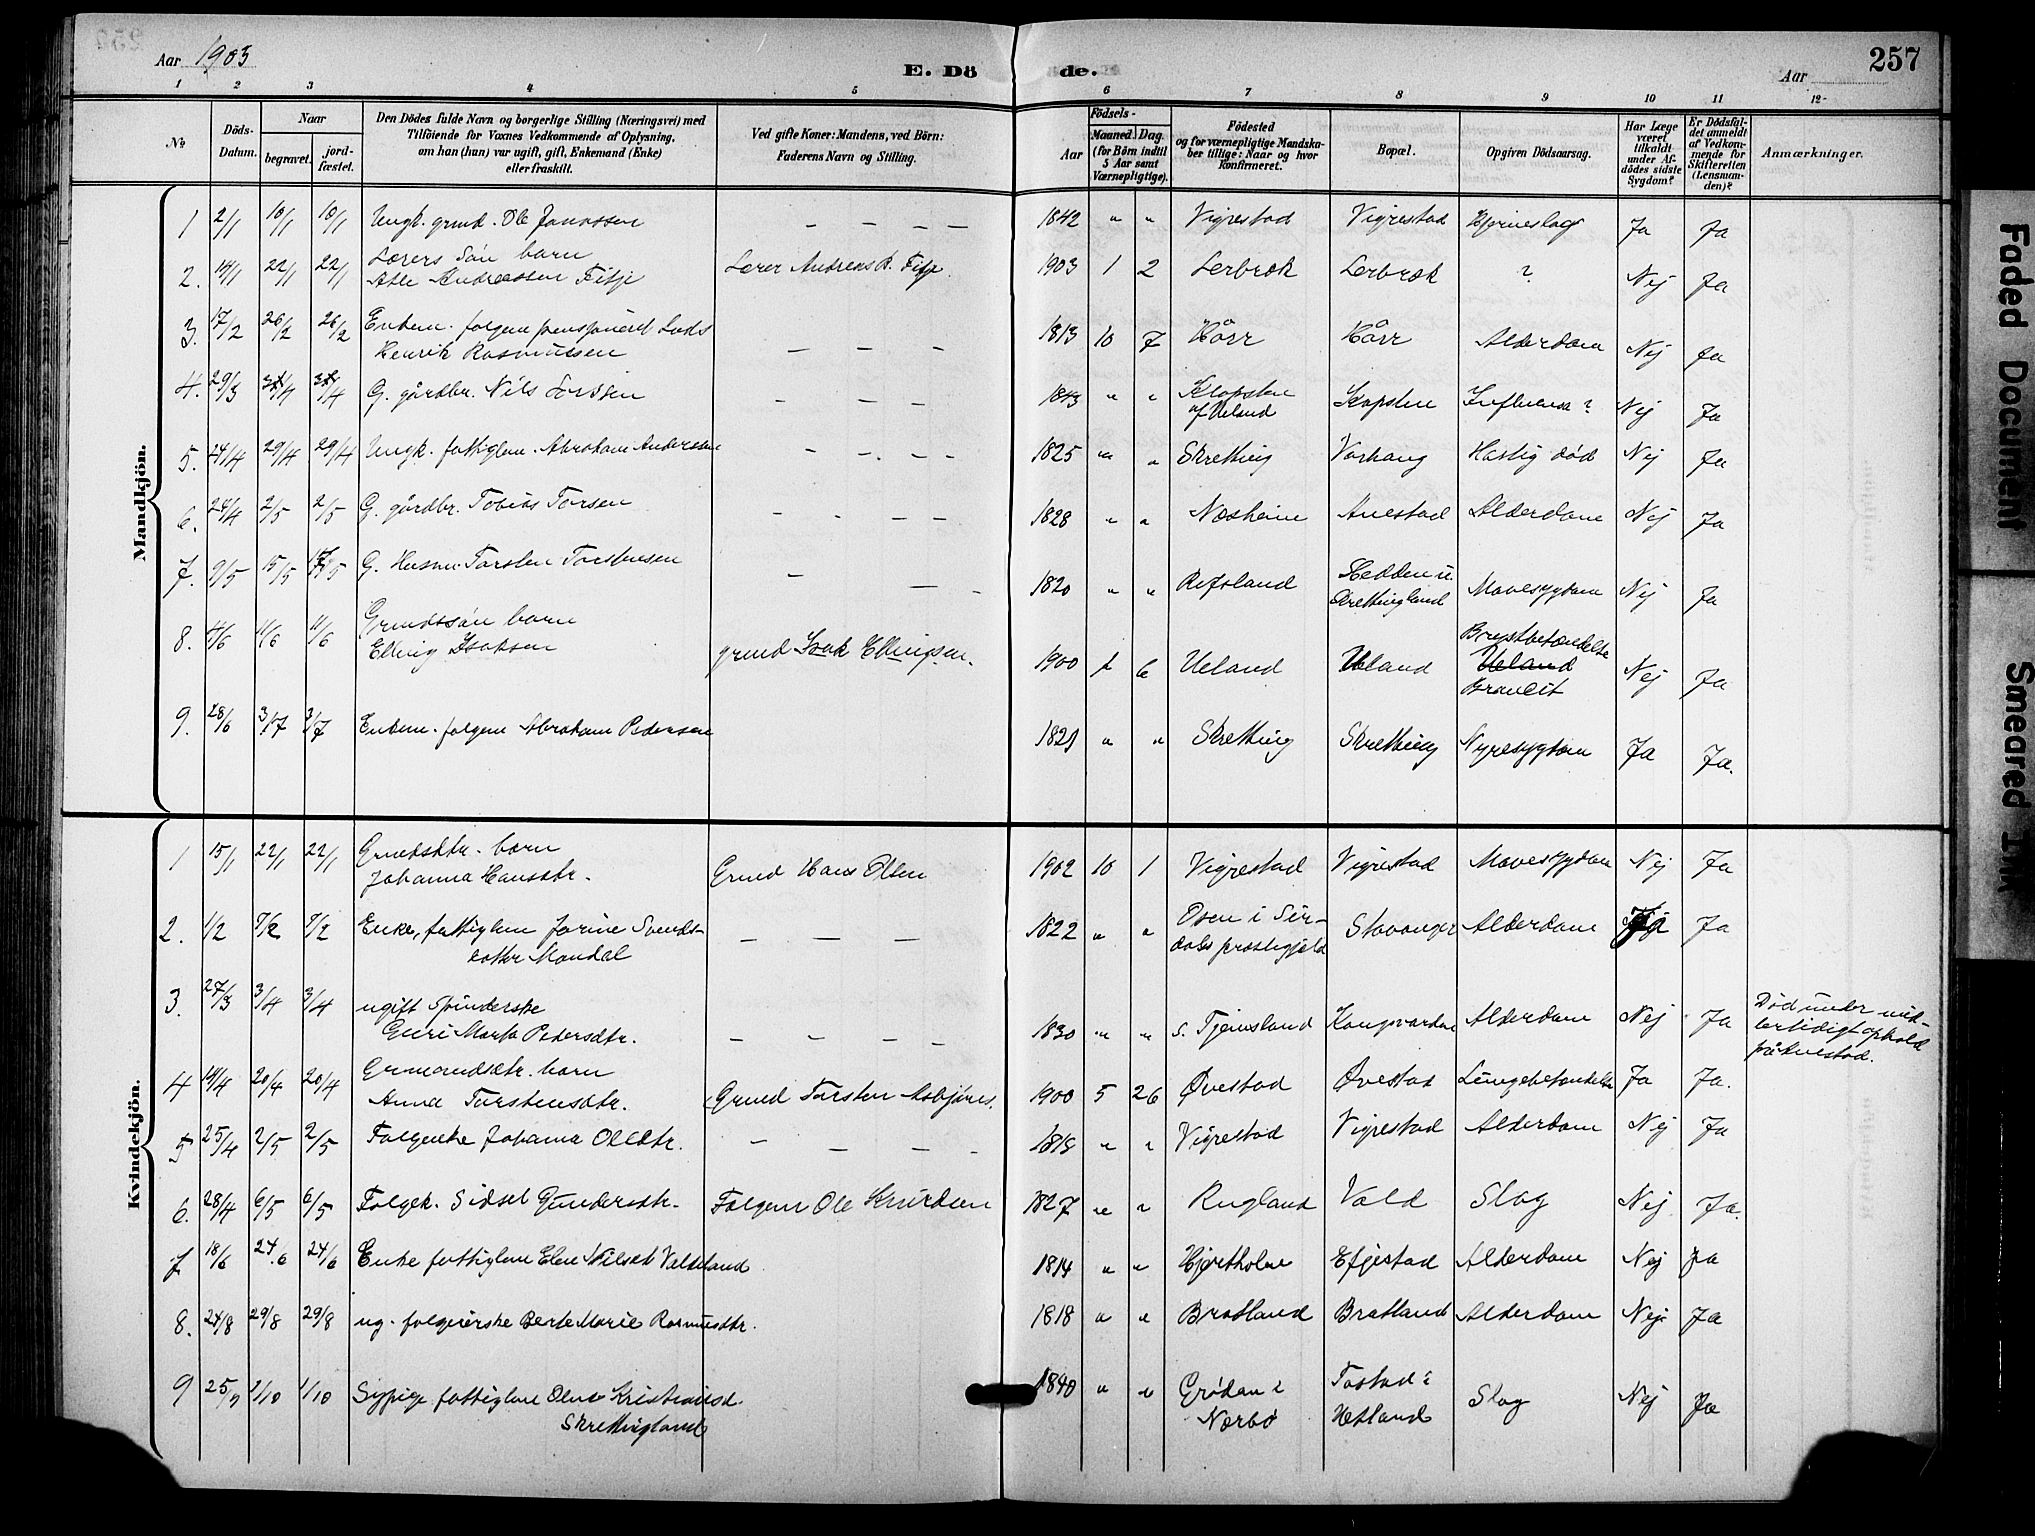 Aar 1903
E. Döde.
Aar
257
1 2 3 4 5 6 7 8 9 10 11 12
№
Döds-Datum.
Naar
begravet.
jord-fæstet.
Den Dödes fulde Navn og borgerlige Stilling (Næringsvei) med
Tilföiende for Voxnes Vedkommende af Oplysning,
om han (hun) var ugift, gift, Enkemand (Enke)
eller fraskilt.
Ved gifte Koner: Mandens, ved Börn:
Faderens Navn og Stilling.
Födsels-
Aar
Maaned.
Dag.
(for Börn indtil
5 Aar samt
Værnepligtige).
Födested
og for værnepligtige Mandska-
ber tillige: Naar og hvor
Konfirmeret.
Bopæl.
Opgiven Dödsaarsag.
Har Læge
været
tilkaldt
under Af-
dödes sidste
Sygdom?
Er Dödsfal-
det anmeldt
af Vedkom-
mende for
Skifteretten
(Lensman-
den)?
Anmærkninger.
Mandkjön.
1 2/1 10/1 10/1 Ungk. grmd. Ole Jonassen — — — — 1842 " " Vigrestad Vigrestad Hjerneslag Ja Ja
2. 14/1 22/1 22/1 Lærers Søn barn
Atle Andreassen Fitje Lærer Andreas R. Fitje. 1903 1 2 Lerbræk Lerbræk ? Nej Ja
3. 17/2 26/2 26/2 Enkem. folgem. pensjoneret Lods
Henrik Rasmussen — — — 1813 10 7 Hårr Hårr Alderdom Nej Ja
4. 29/3 G. gårdbr. Nils — — — 1843 " " Klopsten
af Ueland Kopsten Influensa? Nej Ja
5. 24/4 29/4 29/4 Ungk. fattiglem. Abraham Andersen — — — — 1825 " " Skretting Varhaug Hastig død Nej Ja
6. 24/4 2/5 2/5 G. gårdbr. Tobias Torsen — — — — 1828 " " Næsheim Anestad Alderdom Nej Ja
7. 9/5 15/5 G. Husm. Torsten Torstensen — — — 1820 " " Refsland Hedden u.
Skrettingland Mavesygdom Nej Ja
8. 4/6 11/6 11/6 Grmdssøn barn
Elling Isaksen grmd Isak Ellingsen. 1900 1 6 Ueland Ueland Brystbetændelse
Ueland
Nej Ja
9. 28/6 3/7 3/7 Enkem. folgem Abraham Pedersen 1821 " " Skretting Skretting Nyresygdom Ja Ja.
Kvindekjön.
1 15/1 22/1 22/1 Grmdsdtr. barn
Johanna Hansdtr. Grmd Hans Olsen 1902 10 1 Vigrestad Vigrestad Mavesygdom Nej Ja
2. 1/2 7/2 7/2 Enke, fattiglem Jorine Svends-
datter Mandal — — — 1822 " " Osen i Sir-
dals prestegjeld Stavanger Alderdom Ja
3. 27/3 3/4 3/4 ugift Spinderske
Guri Marta Pedersdtr. — — — — 1830 " " S. Tjemsland Kongsvarden Alderdom Nej Ja Død under mid-
lertidigt ophold
på Anestad.
4 14/4 20/4 20/4 Grmandsdtr. barn
Anna Torstensdtr. Grmd Torsten Asbjørns. 1900 5 26 Øvestad Øvestad Lungebetændelse Ja Ja.
5 25/4 2/5 2/5 Folgenke Johanna Olsdtr. — — — — 1818 " " Vigrestad Vigrestad Alderdom Nej Ja
6. 28/4 6/5 6/5 Folgek. Sidsel Gundersdtr. Folgem Ole Knudsen 1827 " " Rugland Vold Slag Nej Ja.
7 18/6 24/6 24/6 Enke fattiglem Elen Nilsdt Valdeland 1814 " " Hjertholm Efjestad Alderdom Nej Ja
8. 24/8 29/8 29/8 ug. folgeierske Berte Marie Rasmusdtr. 1818 " " Bratland Bratland Alderdom Nej Ja
9 25/9 1/10 1/10 Sypige fattiglem Olene Kristiansd.
Skrettingland 1840 " " Grødem i
Nærbø Tastad i
Hetland Slag Nej Ja
Faded Document
Smeared Ink